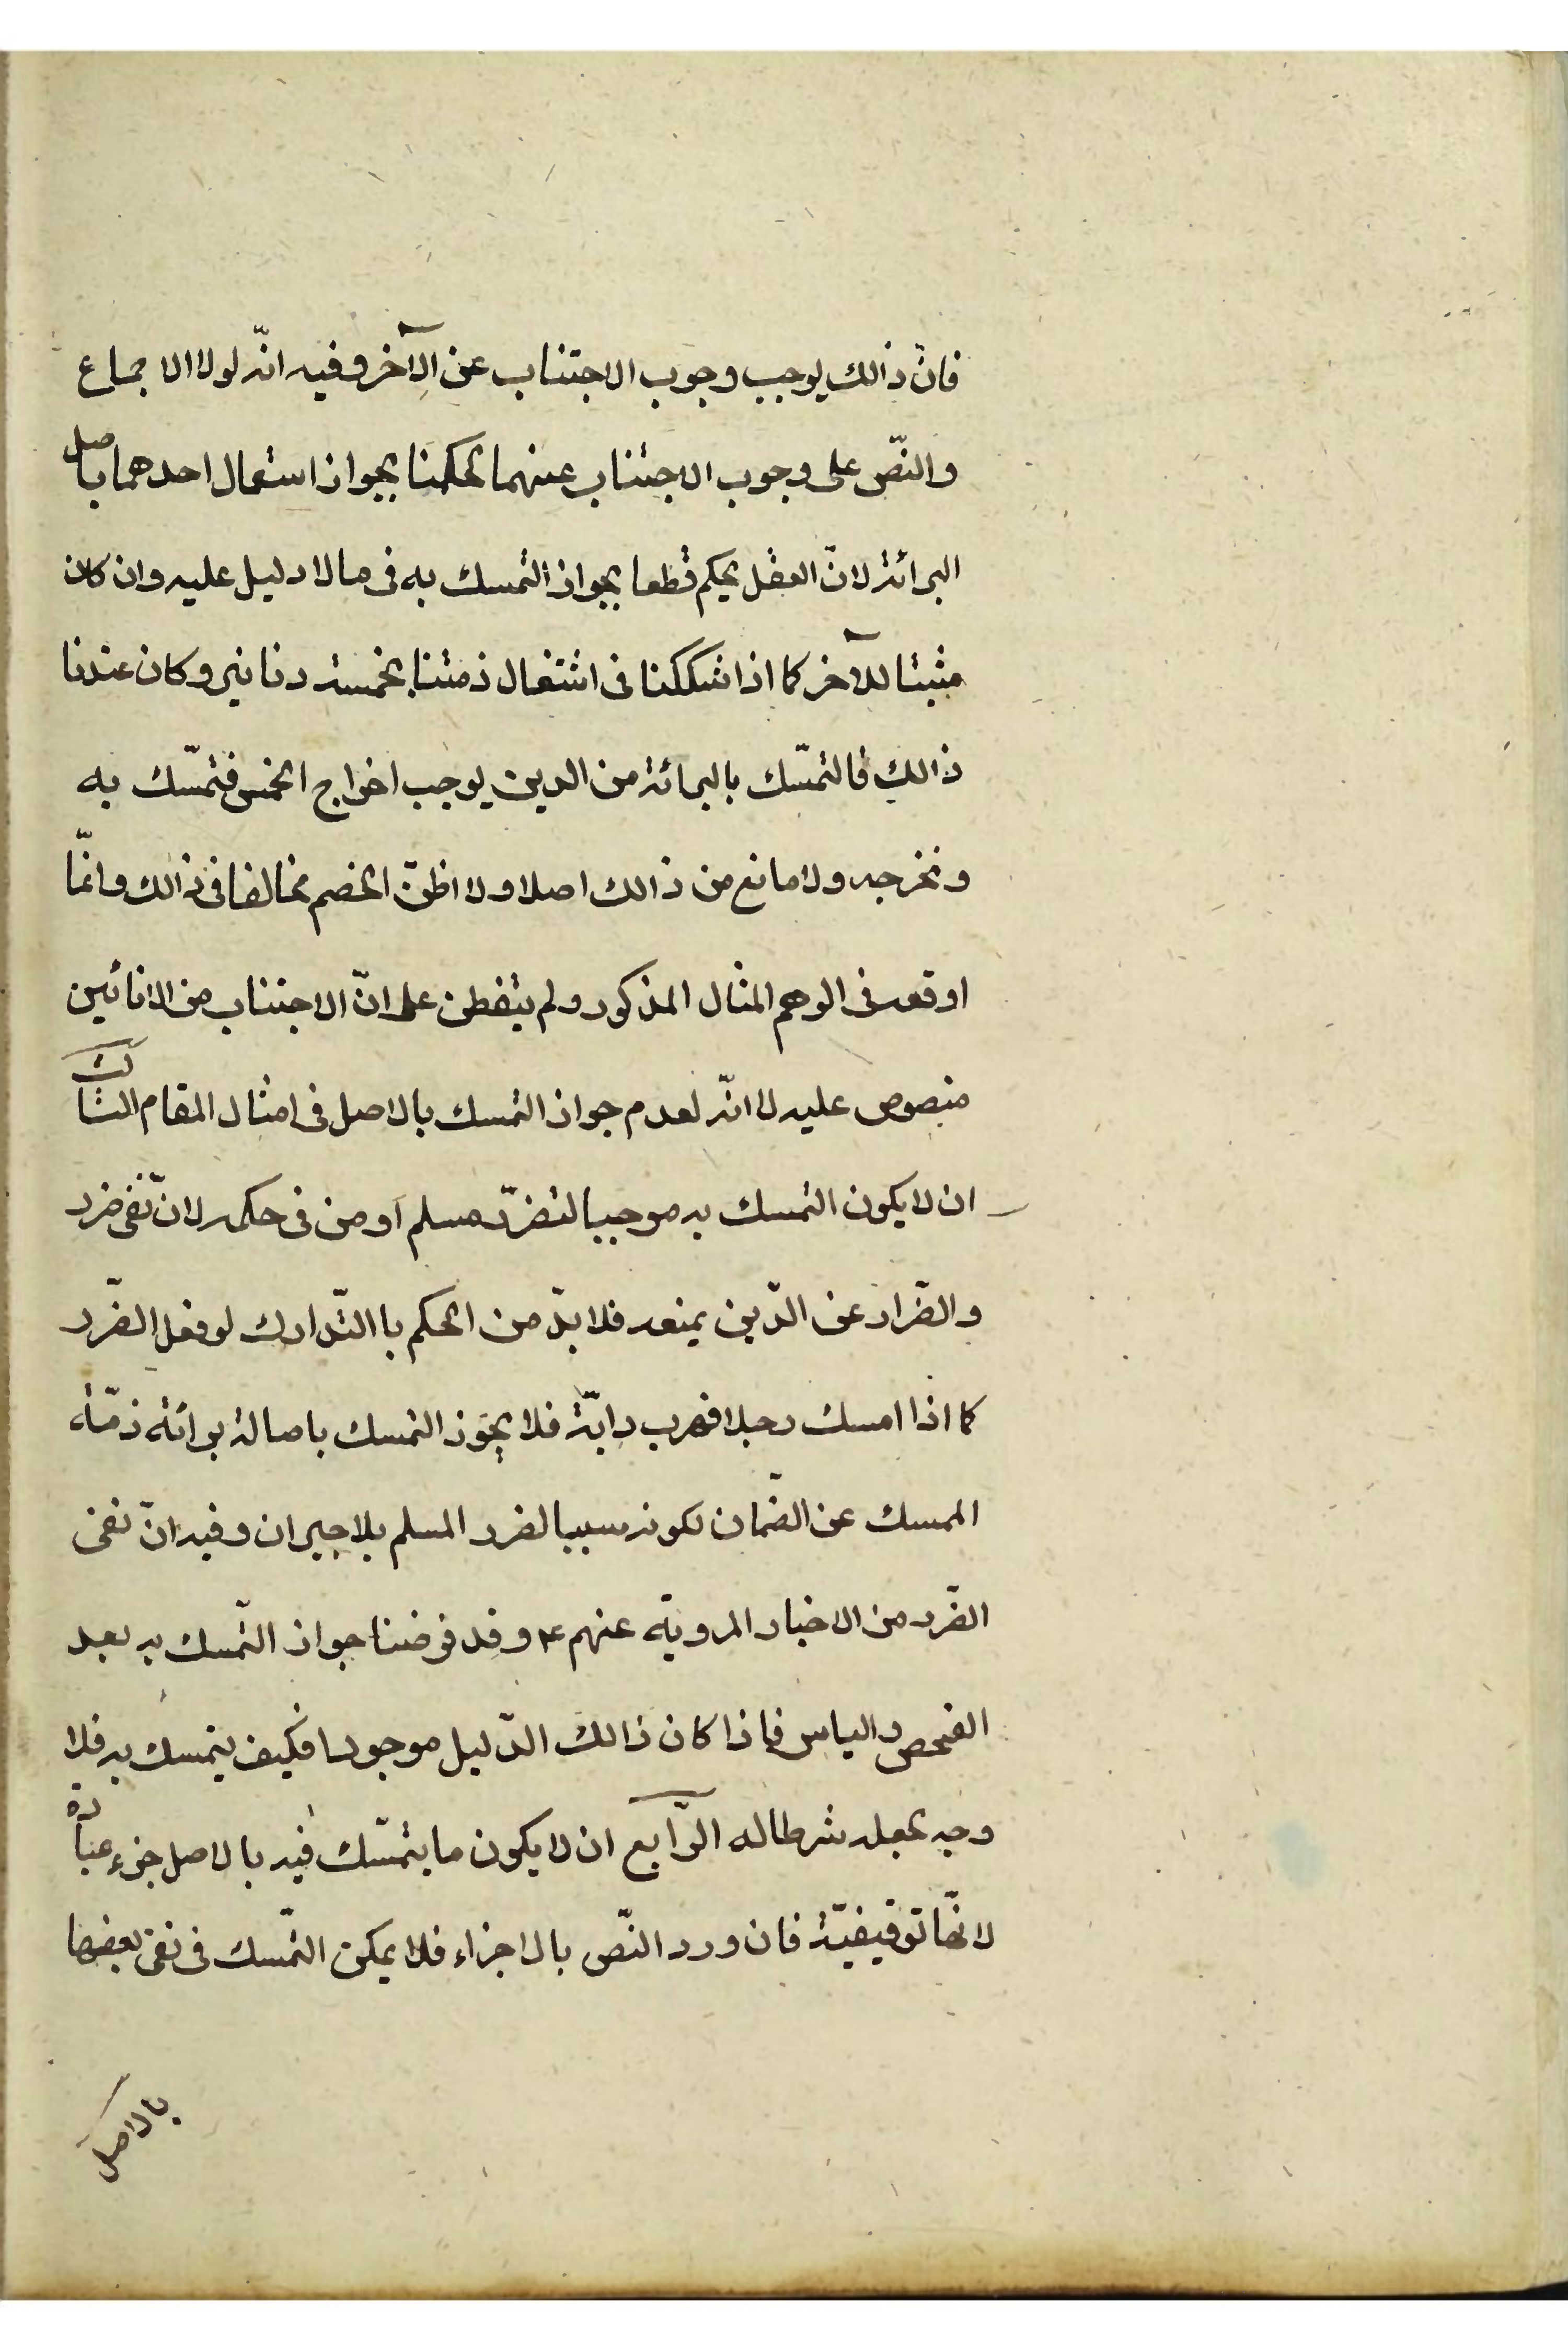 فانّ ذالك يوجب وجوب الاجتناب عن الآخر وفيه انّه لولا الاجماع
والنّص على وجوب الاجتناب عنهما لحكمنا بجواز استعمال احدهما باصل
البرائة لانّ العقل يحكم قطعا بجواز التمسك به فى ما لا دليل عليه وان كان
مثبتا للآخر كما اذا شككنا فى اشتغال ذمتنا بخمسة دنانير وكان عندنا
ذالك فالتمسّك بالبرائة من الدين يوجب اخراج الخمس فتمسّك به
ونخرجه ولا مانع من ذالك اصلا ولا اظنّ الخصم مخالفا فى ذالك وانمّا
اوقعه فى الوهم المثال المذكور ولم يتفطن على انّ الاجتناب من الانائين
منصوص عليه لا انّه لعدم جواز التمسك بالاصل فى امثال المقام الثالث
ان لا يكون التمسك به موجبا لتضرّر مسلم او من فى حكمه لانّ نفى ضرر
والضّرار عن الدّين يمنعه فلا بدّ من الحكم باالتّدارك لو فعل الضّرر
كما اذا امسك رجلا فهرب دابّة فلا يجوز التمسك باصالة برائة ذمّة
الممسك عن الضّمان لكونه سببا لضرر المسلم بلا جبران وفيه انّ نفى
الضّرر من الاخبار المرويّه عنهم ع وقد فرضنا جواز التّمسك به بعد
الفحص والياس فاذا كان ذالك الدّليل موجودا فكيف يتمسك به فلا
وجه لجعله شرطا له الرّابع ان لا يكون ما يتمسّك فيه بالاصل جزء عبادة
لانهّا توقيفيّة فان ورد النّص بالاجزاء فلا يمكن التّمسك فى نفى بعضها
بالاصل